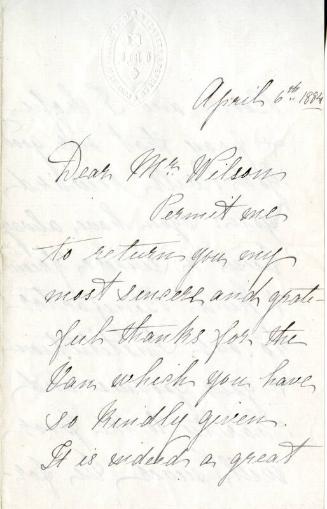 April 6th 1884
Dear Mr Wilson
Permit me
to return you my
most sincere and grate-
ful thanks for the
Van which you have
so kindly given.
It is indeed a great